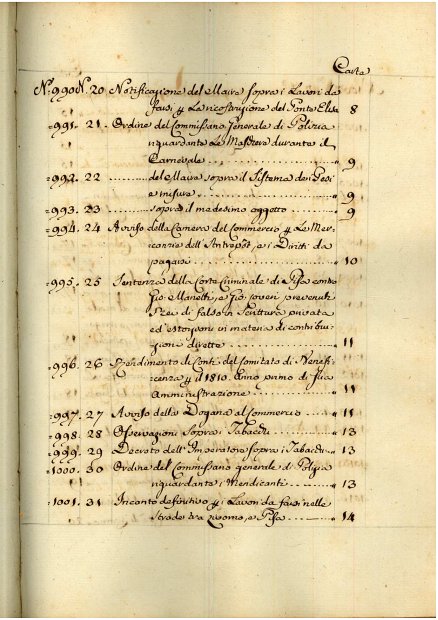 Carta
N.° 990 N. 20 Notificazione del Maire sopra i Lavori da
farsi p La ricostruzione del Ponte Elisa 8
= 991. 21. Ordine del Commissario Generale di Polizia
riguardante Le Maschere durante il
Carnevale ........ " 9
= 992. 22 ........ del Maire sopra il Sistema dei Pesi
e misure ........ " 9
= 993. 23 ........ sopra il medesimo oggetto ........ " 9
= 994. 24 Avviso della Camera del Commercio p Le Mer-
canzie dell'Antrepôt, e i Diritti da
pagarsi ........ " 10
= 995. 25 Sentenza della Corte Criminale di Pisa contro
Gio. Manetti, e Gio. prevenuti
di falso in Scrittura privata
ed estorsioni in materia di contribu-
zioni dirette ........ " 11
= 996. 26 Rendimento di Conti del Comitato di Benefi-
cenza p il 1810. Anno primo di sua
Amministrazione ........ " 11
= 997. 27 Avviso della Dogana al Commercio ........ " 11
= 998. 28 Osservazioni sopra i Tabacchi ........ " 13
= 999. 29 Decreto dell'Imperatore sopra i Tabacchi .. " 13
= 1000. 30 Ordine del Commissario generale di Polizia
riguardante i Mendicanti ........ " 13
= 1001. 31 Incanto definitivo p i Lavori da farsi nelle
strade tra Livorno, e Pisa ........ " 14